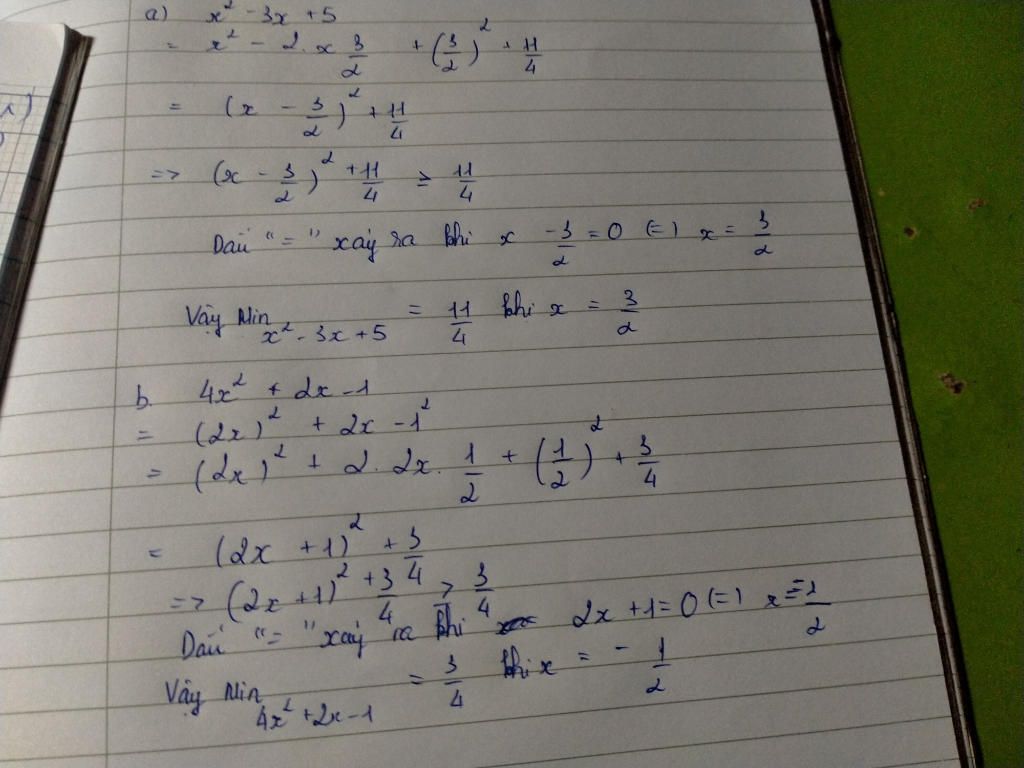 a) x² - 3x + 5
= x² - 2. x 3/2 + (3/2)² + 11/4
= (x - 3/2)² + 11/4
=> (x - 3/2)² + 11/4 ≥ 11/4
Dấu "=" xảy ra khi x - 3/2 = 0 (=) x = 3/2
Vậy Min x² - 3x + 5 = 11/4 khi x = 3/2
b. 4x² + 2x - 1
= (2x)² + 2x - 1²
= (2x)² + 2. 2x. 1/2 + (1/2)² + 3/4
= (2x + 1)² + 3/4
=> (2x + 1)² + 3/4 ≥ 3/4
Dấu "=" xảy ra khi 2x + 1 = 0 (=) x = -1/2
Vậy Min 4x² + 2x - 1 = 3/4 khi x = - 1/2